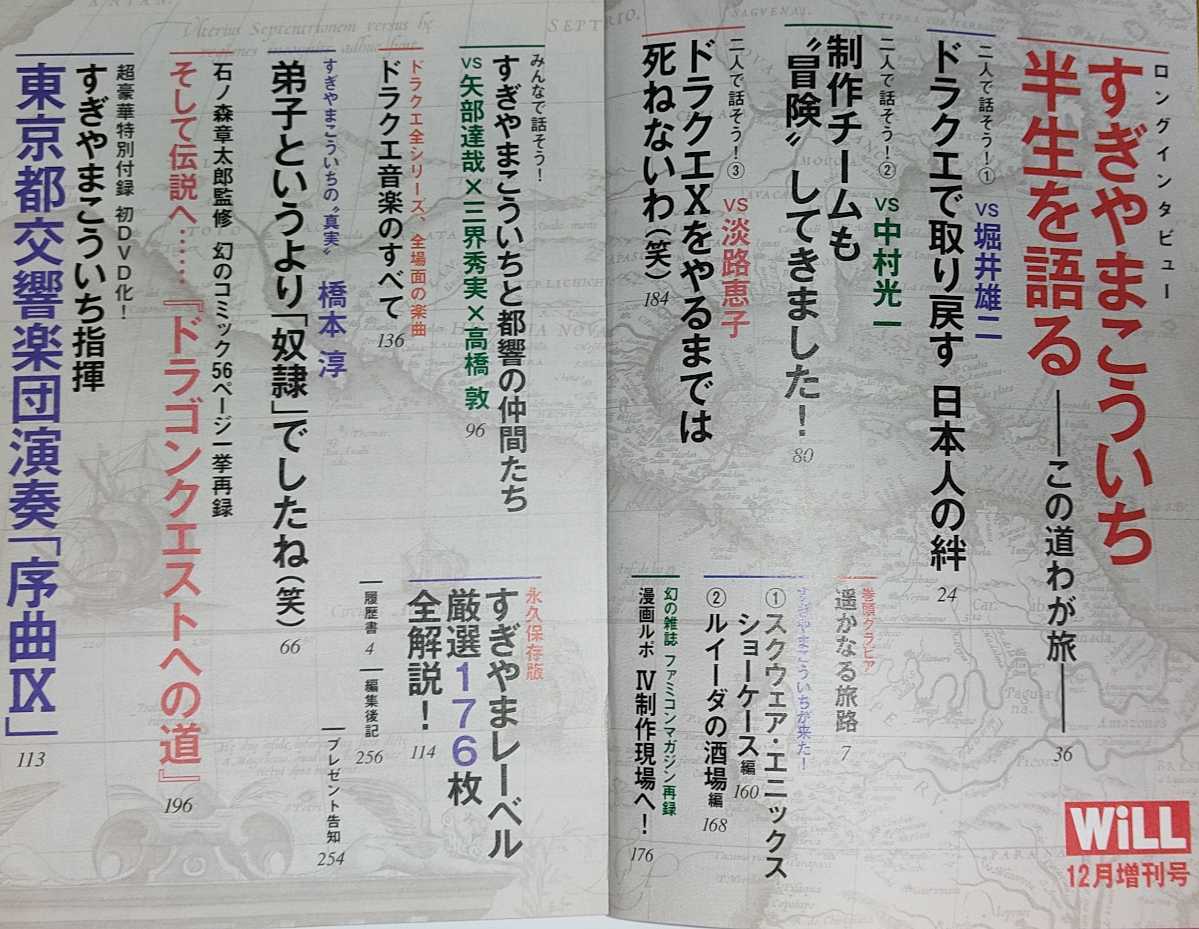 ロングインタビュー
すぎやまこういち
半生を語る
――この道わが旅――
36
二人で話そう!① VS堀井雄二
ドラクエで取り戻す 日本人の絆
24
二人で話そう!② VS中村光一
制作チームも
〝冒険〟してきました!
80
二人で話そう!③ VS淡路恵子
ドラクエXをやるまでは
死ねないわ(笑)
184
巻頭グラビア
遥かなる旅路
7
すぎやまこういちが来た!
①スクウェア・エニックス
ショーケース編
160
②ルイーダの酒場編
168
幻の雑誌 ファミコンマガジン再録
漫画ルポ Ⅳ制作現場へ!
176
WiLL
12月増刊号
みんなで話そう!
すぎやまこういちと都響の仲間たち
VS矢部達哉×三界秀実×高橋 敦
96
ドラクエ全シリーズ、全場面の楽曲
ドラクエ音楽のすべて
136
すぎやまこういちの〝真実〟 橋本 淳
弟子というより「奴隷」でしたね(笑)
66
石ノ森章太郎監修 幻のコミック56ページ一挙再録
そして伝説へ……『ドラゴンクエストへの道』
196
超豪華特別付録 初DVD化!
すぎやまこういち指揮
東京都交響楽団演奏「序曲Ⅸ」
113
永久保存版
すぎやまレーベル
厳選176枚
全解説!
114
履歴書
4
編集後記
256
プレゼント告知
254